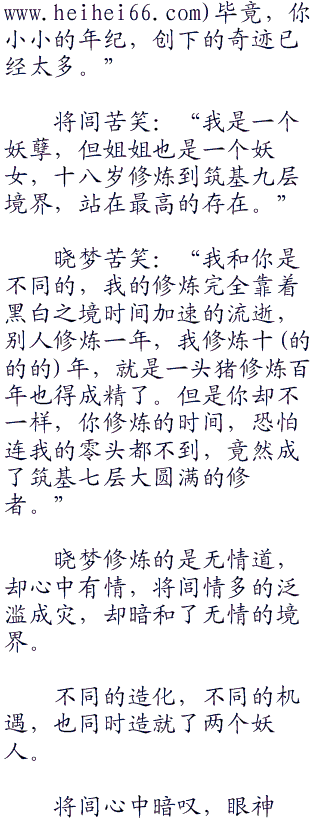 www.heihei66.com)毕竟，你
小小的年纪，创下的奇迹已
经太多。”
将闾苦笑：“我是一个
妖孽，但姐姐也是一个妖
女，十八岁修炼到筑基九层
境界，站在最高的存在。”
晓梦苦笑：“我和你是
不同的，我的修炼完全靠着
黑白之境时间加速的流逝，
别人修炼一年，我修炼十(的
的的)年，就是一头猪修炼百
年也得成精了。但是你却不
一样，你修炼的时间，恐怕
连我的零头都不到，竟然成
了筑基七层大圆满的修
者。”
晓梦修炼的是无情道，
却心中有情，将闾情多的泛
滥成灾，却暗和了无情的境
界。
不同的造化，不同的机
遇，也同时造就了两个妖
人。
将闾心中暗叹，眼神